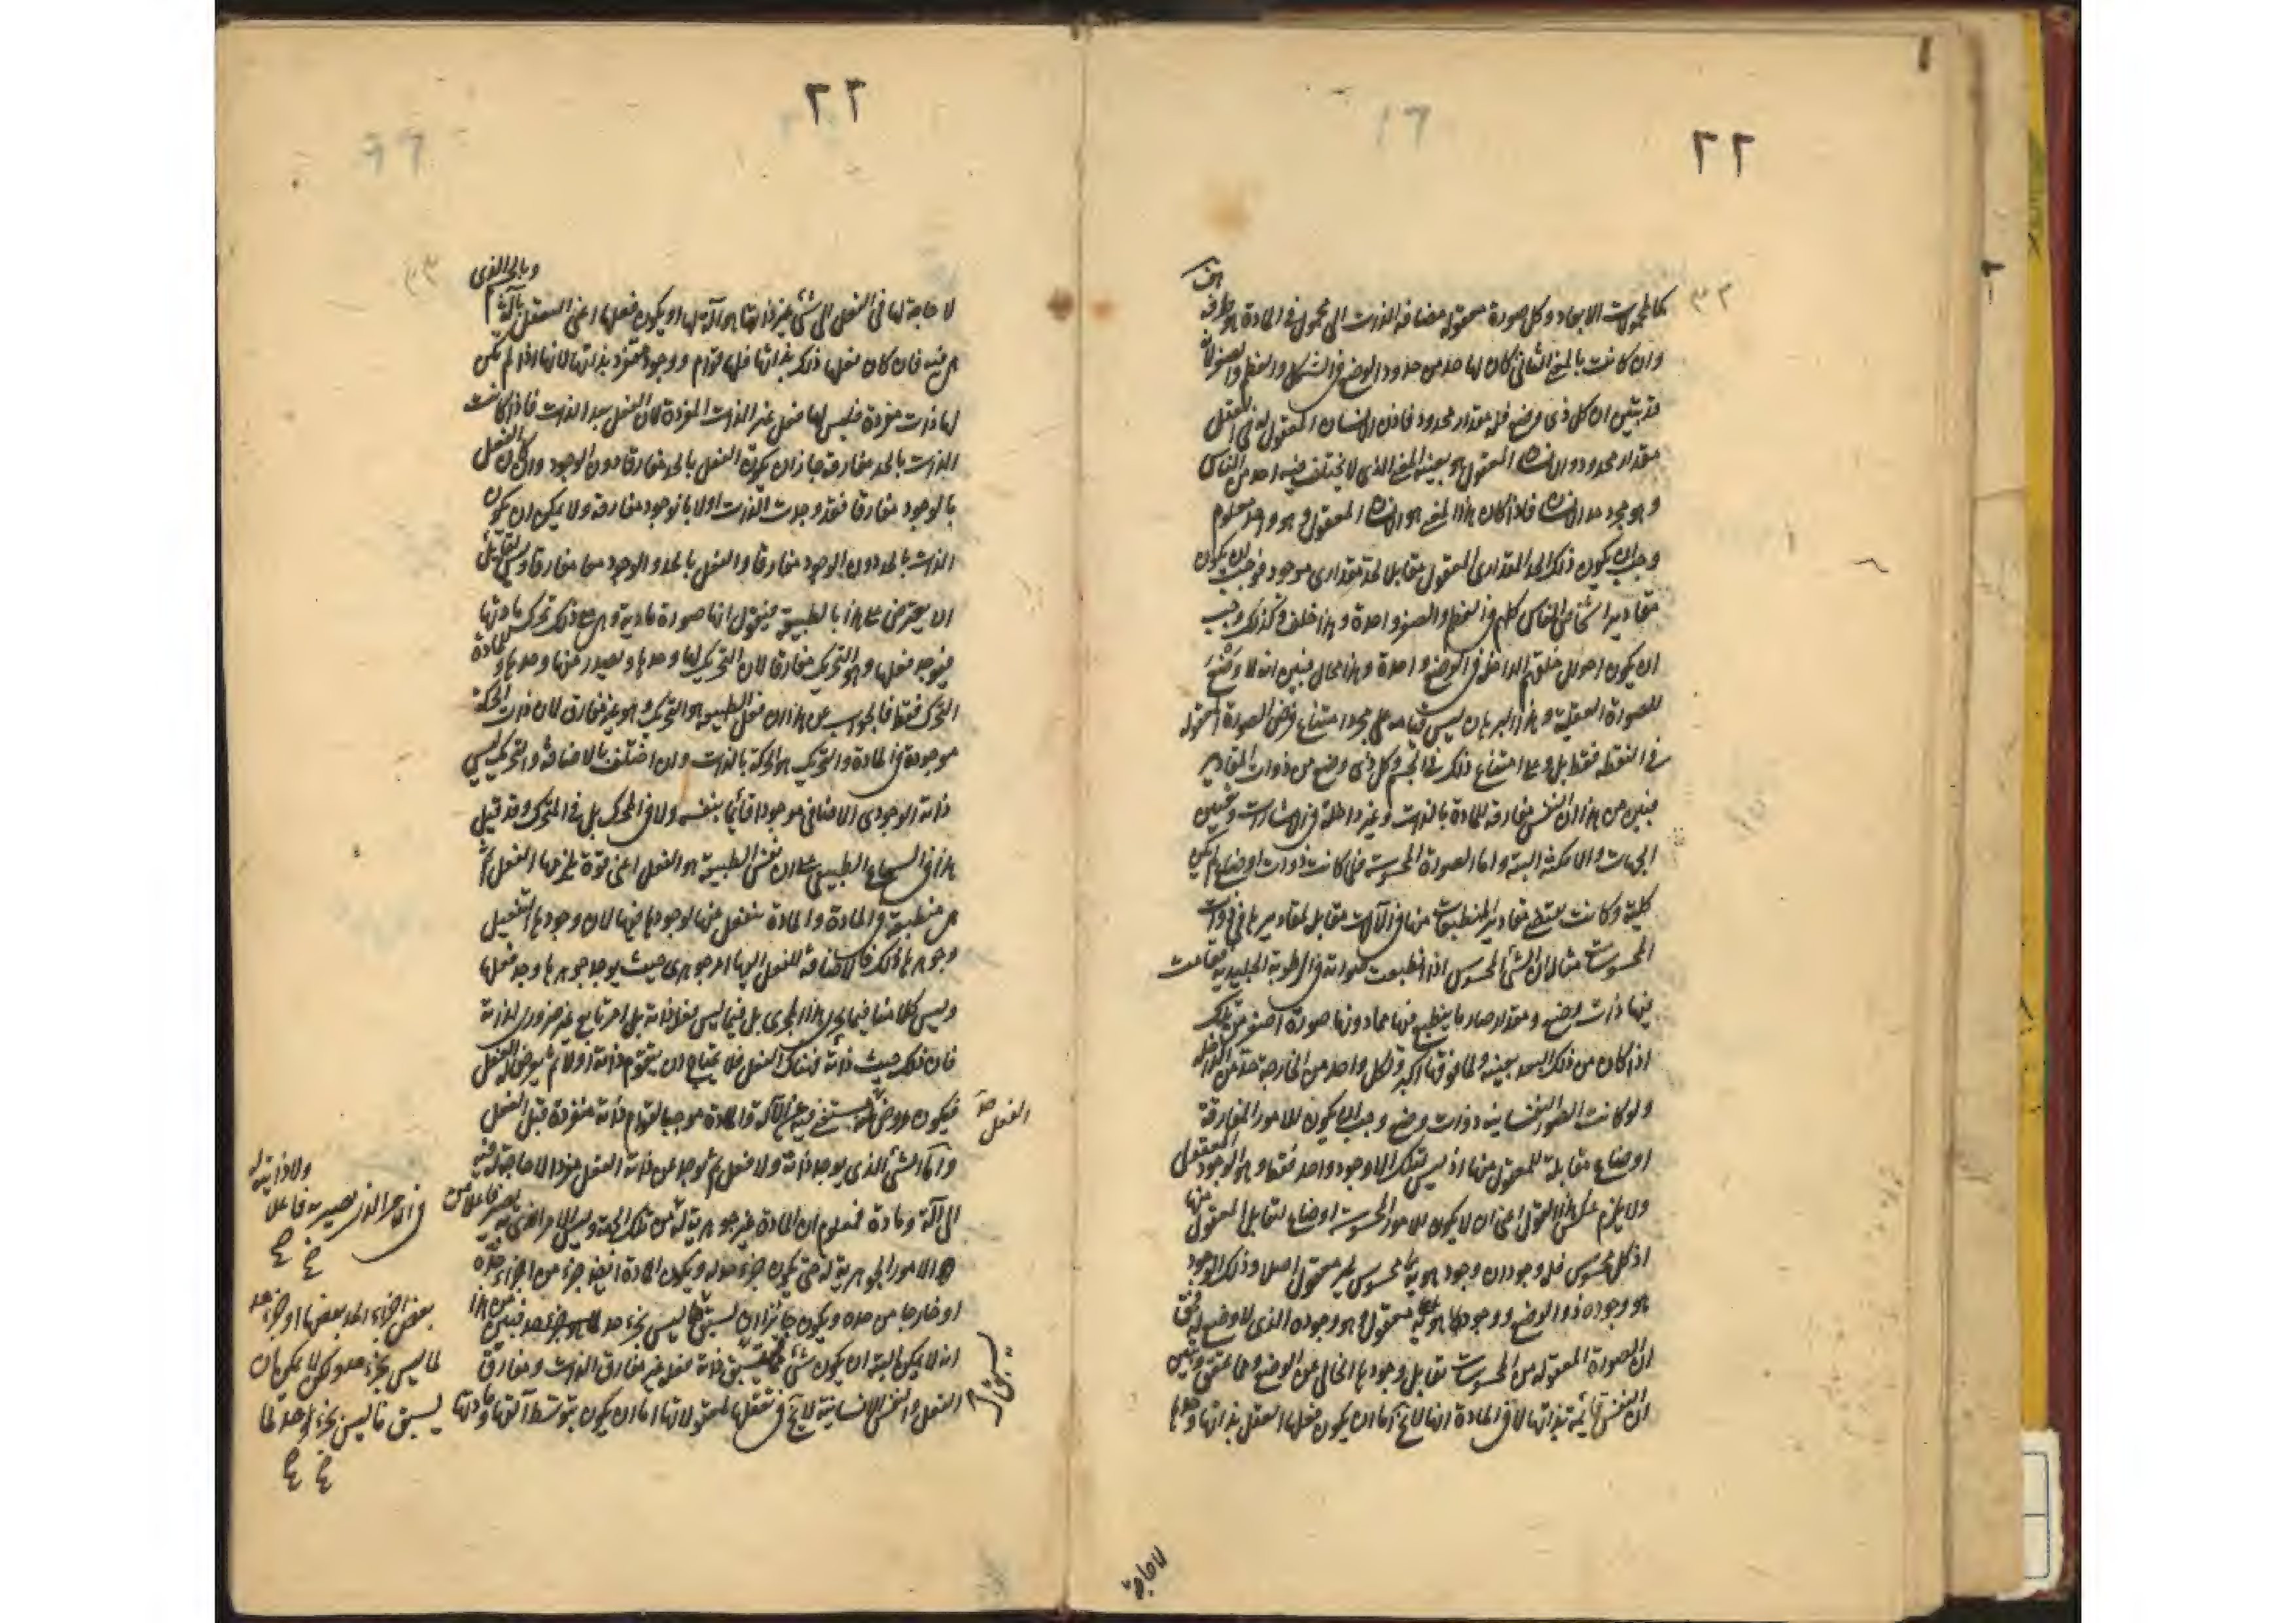 ٢٢
كالمحمولات الابعاد وكل صورة معقولة مضافة الذات الى محمول في المادة
وان كانت بالمعنى الثاني كان لها حد من حدود الوضع في الشكل والعظم والصغر لانه
قد تبين ان كل ذي وضع فله مقدار محدود فاذن الانسان المعقول له في العقل
مقدار محدود والانسان المعقول هو بعينه المعنى الذي لا يختلف فيه احد من الناس
وهو مجرد حد الانسان فاذا كان هذا المعنى هو الانسان المعقول وهو واحد معلوم
وجب ان يكون ذلك الحد المقداري المعقول مقابلا لحد مقداري موجود فوجب ان يكون
مقادير اشخاص الناس كلهم في العظم والصغر واحدة وهذا خلف وكذلك وجب
ان يكون احوال خلقهم الداخل في الوضع واحدة وهذا محال فبين انه لا وضع
للصورة العقلية وهذا البرهان ليس قيامه على مجرد امتناع فرض الصورة المعقولة
في النقطة فقط بل وعلى امتناع ذلك في الجسم وكل ذي وضع من ذوات المقادير
فبين من هذا ان النفس مفارقة للمادة بالذات وغير داخلة في الاشارات وتعيين
الجهات والامكنة البتة واما الصورة المحسوسة فلما كانت ذوات اوضاع لم يكن
كلية وكانت يعتبر مقادير المنطبعات منها في الآلات مقابل لمقاديرها في ذوات
المحسوسات مثاله ان الشئ المحسوس اذا انطبعت صورته في الرطوبة الجليدية
فيها ذات وضع ومقدار صار ما ينطبع فيها مما دونها صورة اصغر من تلك
اذا كان من ذلك البعد بعينه ولما فوقها اكبر ولكل واحد من الخارجة حد من الداخلة
ولو كانت الصور النفسانية ذوات وضع وجب ان يكون للامور المفارقة
اوضاع مقابلة للمعقول منها اذ ليس لتلك الا وجود واحد فقط وهو الوجود المعقول
ولا يلزم عكس هذا القول اعني ان لا يكون للامور المحسوسة اوضاع لتقابل المعقول منها
اذ كل محسوس فله وجودان وجود هو به محسوس غير معقول اصلا وذلك الوجود
هو وجوده ذو الوضع ووجود هو به معقول وهو وجوده الذي لا وضع له
ان الصورة المعقولة من المحسوسات تقابل وجودها الخالي عن الوضع
ان النفس قائمة بذاتها لا في المادة انها لا يخ اما ان يكون فعلها العقل بذاتها وحدها
لا حاجة
٢٢
وبالجزء الذي
لا حاجة لها في الفعل الى شئ غير ذاتها هو آلة لها او يكون فعلها اعني التعقل بآلة
هي فيه فان كان فعلها ذلك بذاتها فلها قوام ووجود متفرد بذاتها لانها اذا لم يكن
لها ذات منفردة فليس لها فعل عن الذات المنفردة لان الفعل بعد الذات فاذا كانت
الذات بالحد مفارقة جاز ان يكون الفعل بالحد مفارقا دون الوجود وان كان الفعل
بالوجود مفارقا فقد وجدت الذات اولا بالوجود مفارقة ولا يمكن ان يكون
الذات بالحد دون الوجود مفارقا والفعل بالحد والوجود معا مفارقا وليس لقائل
ان يعترض على هذا بالطبيعة فيقول انها صورة مادية وهي مع ذلك تحرك مادتها
فيوجد فعلها وهو التحريك مفارقا لان التحريك لها وحدها وبصدر منها وحدها وللمادة
التحرك فقط فالجواب عن هذا ان فعل الطبيعة هو التحريك وهو غير مفارق لان ذات الحركة
موجودة في المادة والتحريك هو الحركة بالذات وان اختلف بالاضافة والتحريك ليس
ذاته الوجودي الاضافي موجودا قائما بنفسه ولا في المحرك بل في المتحرك وقد قيل
هذا في السماع الطبيعي على ان نفس الطبيعة هو الفعل اعني قوة يلزمها الفعل ثم
هي منطبعة في المادة والمادة ينفعل منها لوجودها فيها لان وجودها التفعيل
وجوهرها ذلك فالاضافة للفعل اليها امر جوهري حيث يوجد جوهرها وجد فعلها
وليس كلامنا فيما يجري هذا المجرى بل فيما ليس فعلا ذاته بل امر تابع غير ضروري لذاته
فان ذلك حيث ذاته فهناك الفعل فلا يحتاج ان يتقوم ذاته اولا ثم يعرض له الفعل
فيكون عروض ما يستغنى فيه عن الآلة والمادة موجبا لقوام ذاته منفردة قبل الفعل
واما الشئ الذي يوجد ذاته ولا فعل ثم يوجد من ذاته الفعل منفردا لا حاجة له فيه
الى آلة ومادة فمعلوم ان المادة غير جوهرية له من تلك الجهة وليس الامر الذي به يصير فاعلا من
الامور الجوهرية له حتى يكون جزء حده ويكون المادة ايضا جزء من اجزاء حده
او خارجا من حده ويكون جائزا ان يسبق ما ليس بجزء حد فبين من هذا
انه لا يمكن البتة ان يكون شئ يسبق ذاته فعله غير مفارق الذات ومفارق
الفعل والنفس الانسانية لا يخ في تعقلها لمعقولاتها اما ان يكون بتوسط آلتها ومادتها
الفعل صح
ولا ذاتية له
في الامر الذي يصير به فاعلا
بعض اجزاء الحد بعضها او جزء حد
لما ليس بجزء حد ولكن لا يمكن ان
يسبق ما ليس بجزء حد لما